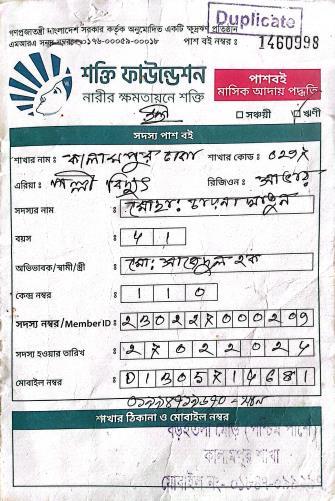 গণপ্রজাতন্ত্রী বাংলাদেশ সরকার কর্তৃক অনুমোদিত একটি ক্ষুদ্রঋণ প্রতিষ্ঠান
Duplicate
এমআরএ সনদ নম্বর: ০০১৭৮-০০০৫৯-০০০১৮
পাশ বই নম্বর ঃ 1460998
শক্তি ফাউন্ডেশন
নারীর ক্ষমতায়নে শক্তি
পাশবই
মাসিক আদায় পদ্ধতি
সঞ্চয়ী ঋণী
সদস্য পাশ বই
শাখার নাম ঃ কালামপুর শাখা শাখার কোড ঃ 0297
এরিয়া ঃ পল্লী বিদ্যুৎ রিজিওন ঃ সাভার
সদস্যর নাম ঃ মোছাঃ
বয়স ঃ 41
অভিভাবক/স্বামী/স্ত্রী ঃ মোঃ হক
কেন্দ্র নম্বর ঃ 110
সদস্য নম্বর/Member ID ঃ 230227000209
সদস্য হওয়ার তারিখ ঃ 27022024
মোবাইল নম্বর ঃ 01305714681
শাখার ঠিকানা ও মোবাইল নম্বর
কালামপুর শাখা
মোবাইল নং-